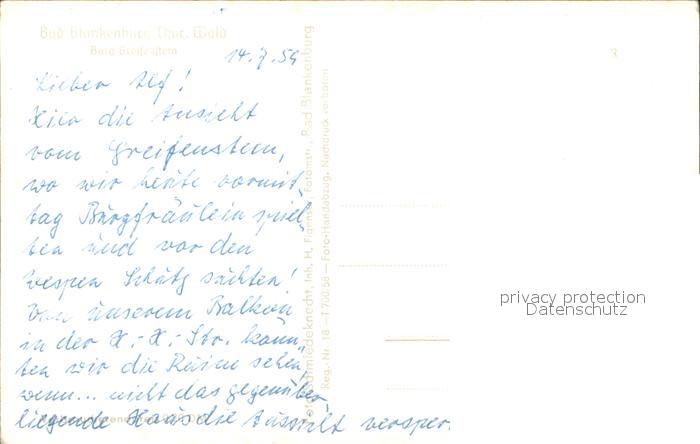 Bad Blankenburg Thür. Wald
Burg Greifenstein
14.7.59
Lieber Alf!
Hier die Ansicht
vom Greifenstein,
wo wir heute vormit-
tag Burgfräulein spiel-
ten und vor den
Wespen Schutz suchten!
Von unserem Balkon
in der K.-H.-Str. könn-
ten wir die Ruine sehen,
wenn... nicht das gegenüber
liegende Haus die Aussicht versper.
Schmiedeknecht, Inh. H. Fotomstr., Bad Blankenburg
Reg.-Nr. 18 — T 700/58 — Foto-Handabzug, Nachdruck verboten
privacy protection
Datenschutz